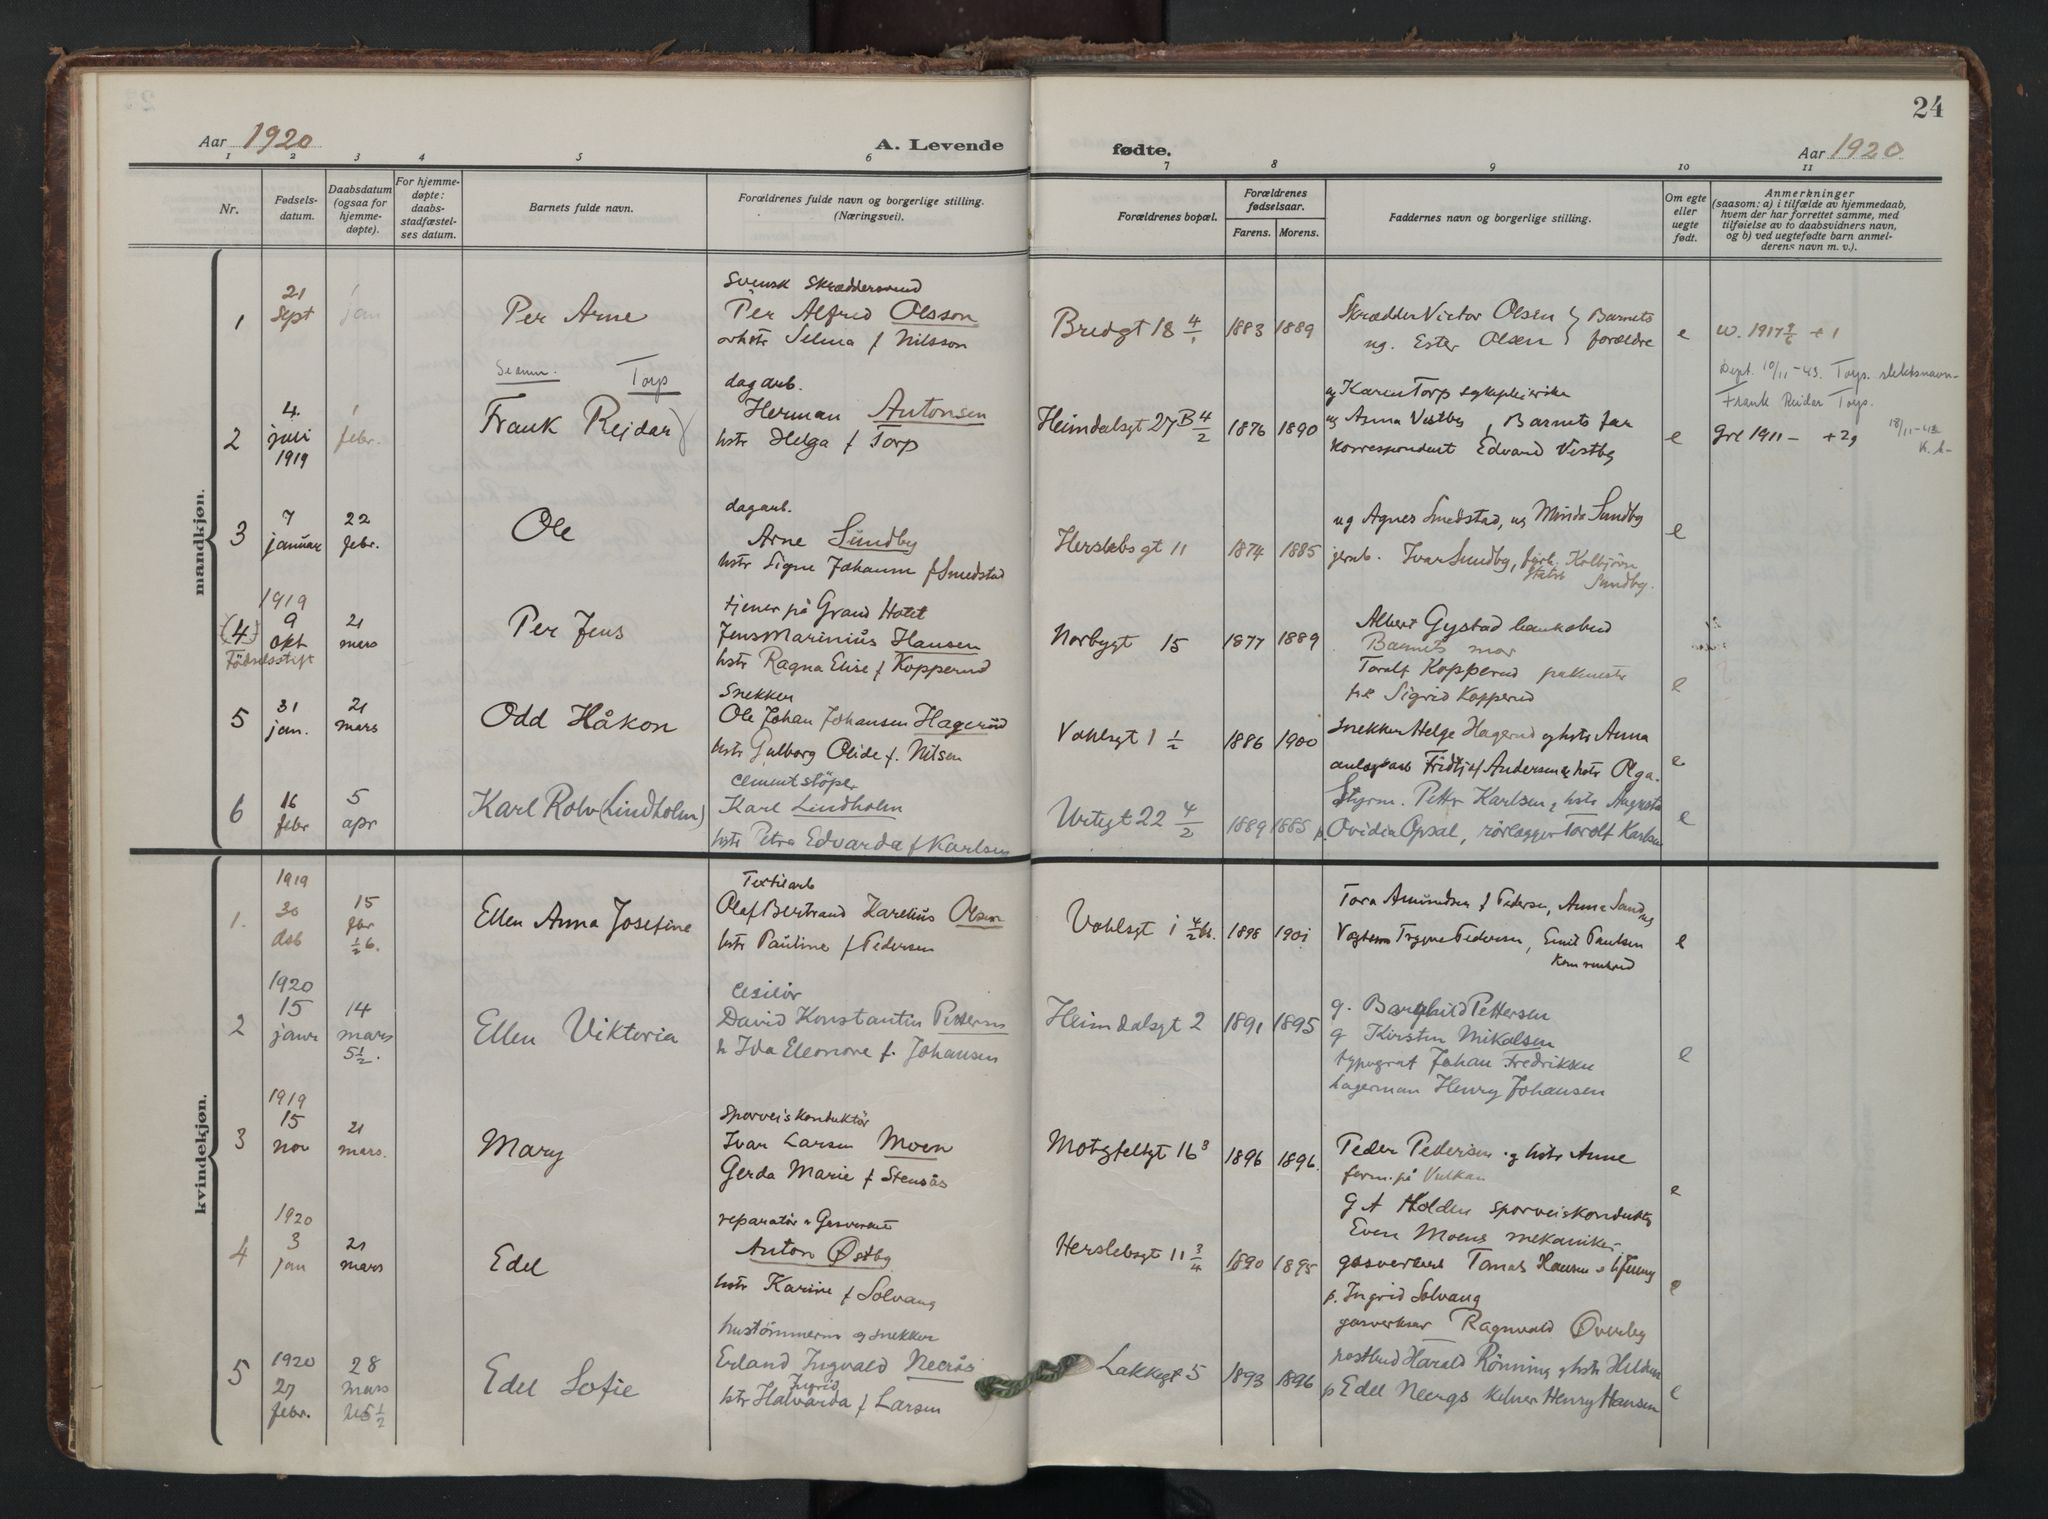 24
Aar 1920 A. Levende fødte. Aar 1920
1 2 3 4 5 6 7 8 9 10 11
Nr.
Fødsels-
datum.
Daabsdatum
(ogsaa for
hjemme-
døpte).
For hjemme-
døpte:
daabs-
stadfæstel-
ses datum.
Barnets fulde navn.
Forældrenes fulde navn og borgerlige stilling.
(Næringsvei).
Forældrenes bopæl.
Forældrenes
fødselsaar.
Farens. Morens.
Faddernes navn og borgerlige stilling.
Om egte
eller
uegte
født.
Anmerkninger
(saasom: a) i tilfælde av hjemmedaab,
hvem der har forrettet samme, med
tilføielse av to daabsvidners navn,
og b) ved uegtefødte barn anmel-
derens navn m. v.).
mandkjøn.
1
21
Sept
1
jan
Per Arne
Svensk Skræddersvend
Per Alfred Olsson
Selma f Nilsson
Bredgt 18 4/1
1883 1889
Skrædder Victor Olsen
ug. Ester Olsen
Barnets
forældre
e
+ 1
2
4.
juli
1919
1
febr.
Torp
Frank Reidar
dagarb.
Herman Antonsen
hstr Helga f Torp
Heimdalsgt 27 B 4/2
1876 1890
ug Karen Torp sykepleierske
ug Anna Vestby, Barnets far
Korrespondent Edvard Vestby
e
Dept. 10/11-43. Torp slektsnavn
Frank Reidar Torp.
18/11-43
K. b-
3
7
januar
22
febr.
Ole
dagarb.
Arne Sundby
hstr Signe Johanne f Smedstad
Herslebsgt 11
1874 1885
ug Agnes Smedstad, ug Minda Sundby
jernb. Ivar Sundby, fyrb. Kolbjörn
Sundby.
e
(4)
1919
9
okt
Födselsstift
21
mars
Per Jens
tjener på Grand Hotel
Jens Marinius Hansen
hstr Ragna Elise f Kopperud
Norbygt 15
1877 1889
Albert Gystad bankobud
Barnets mor
Toralf Kopperud
frk Sigrid Kopperud
e
5
31
jan.
21
mars
Odd Håkon
Snekker
Ole Johan Johansen Hagerud
hstr Gulborg Olide f. Nilsen
Vahlsgt 1 1/2
1886 1900
Snekker Helge Hagerud og hstr Anna
anlægsarb Fridtjof Andersen & hstr Olga.
e
6
16
febr
5
apr
Karl Rolv (Lindholm)
Cementstöper
Karl Lindholm
hstr Petra Edvarda f Karlsen
Urtegt 22 4/2
1889 1885
Styrm. Petter Karlsen, hstr Augusta
p. Ovidia Opsal, rörlegger Torolf Karlsen
e
kvindekjøn.
1.
1919
30
dsb
15
fbr
1/2 6.
Ellen Anna Josefine
Textilarb
Olaf Bertrand Karelius Olsen
hstr Pauline f Pedersen
Vahlsgt 1 4/2
1898 1901
Tora Amundsen f Pedersen, Anna
Trygve Pedersen, Emil Paulsen
e
2
1920
15
janr
14
mars
5 1/2.
Ellen Viktoria
Ciselör
David Konstantin Pettersen
h Ida Eleonore f. Johansen
Heimdalsgt 2
1891 1895
g. Borghild Pettersen
g Kirsten Mikalsen
typograf Johan Fredriksen
Lagerman Henry Johansen
e
3
1919
15
nov
21
mars.
Mary
Sporveiskonduktör
Ivar Larsen Moen
Gerda Marie f Stensås
Motzfeltgt 16 3
1896 1896.
Peder Pedersen og hstr Anne
form. på Vulkan
G A Holden sporveiskonduktör
Even Moens mekaniker.
e
4
1920
3
jan
21
mars
Edel
reparatör v Gasverket
Anton Østby
hstr Karine f Solvang
Herslebsgt 11 3/4
1890 1895
gasverket Tomas Hansen
p. Ingrid Solvang
gasverksar Ragnvald Överby
e
5
1920
27
febr.
28
mars
5 1/2
Edel Sofie
hustömmerm og snekker
Erland Ingvald Neerås
Ingrid
hstr Halvarda f Larsen
Lakkegt 5
1893 1896
postbud Harald Rönning og hstr Hildur
p Edel Neergs kelner Henry Hansen
e